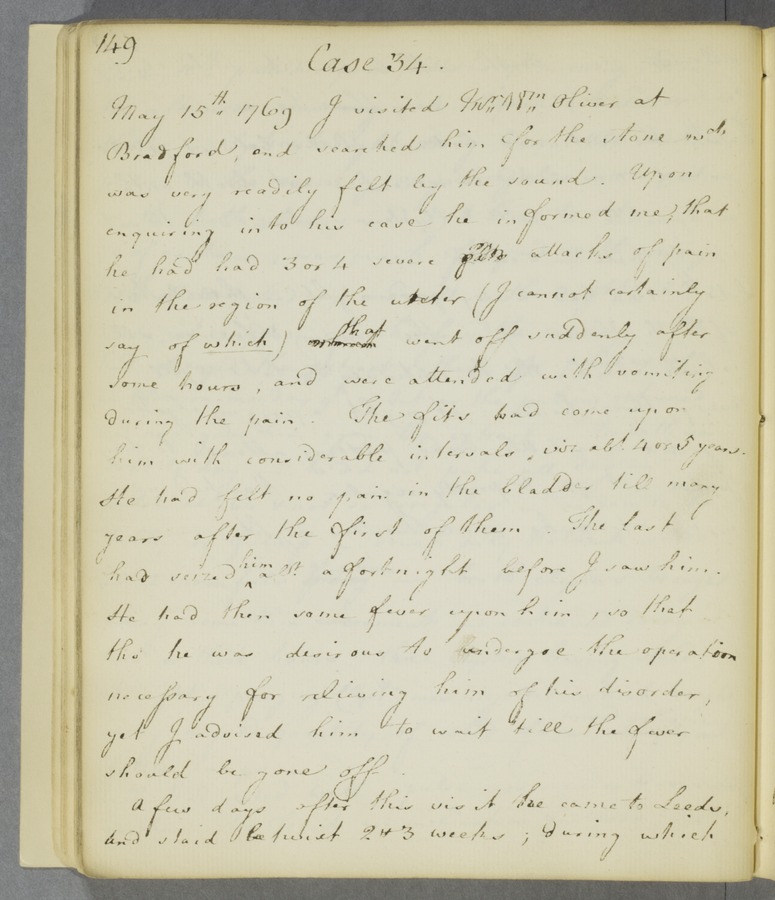 149
Case 34.
May 15th 1769 I visited Mr. Wm. Oliver at
Bradford, and searched him for the stone wch
was very readily felt by the sound. Upon
enquiring into his case he informed me, that
he had had 3 or 4 severe attacks of pain
in the region of the ureter (I cannot certainly
say of which) that went off suddenly after
some hours, and were attended with vomiting
during the pain. The fits had come upon
him with considerable intervals, viz abt. 4 or 5 years.
He had felt no pain in the bladder till many
years after the first of them. The last
had seized him abt. a fortnight before I saw him.
He had then some fever upon him, so that
tho' he was desirous to undergoe the operation
necessary for relieving him of his disorder,
yet I advised him to wait till the fever
should be gone off.
A few days after this visit he came to Leeds,
and staid betwixt 2 & 3 weeks; during which